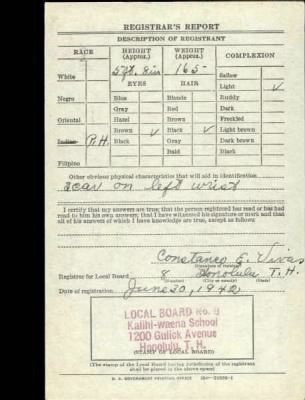 REGISTRAR'S REPORT
DESCRIPTION OF REGISTRANT
RACE HEIGHT (Approx.) WEIGHT (Approx.) COMPLEXION
5 ft. 165
White Sallow
EYES HAIR Light ✓
Negro Blue Blonde Ruddy
Gray Red Dark
Oriental Hazel Brown Freckled
Brown ✓ Black ✓ Light brown
Indian P.H. Black Gray Dark brown
Bald Black
Filipino
Other obvious physical characteristics that will aid in identification
scar on left wrist
I certify that my answers are true; that the person registered has read or has had
read to him his own answers; that I have witnessed his signature or mark and that
all of his answers of which I have knowledge are true, except as follows:
Constanco E. Vivas
(Signature of registrar)
Registrar for Local Board 8 Honolulu T.H.
(Number) (City or county) (State)
Date of registration June 30, 1942
LOCAL BOARD No. 8
Kalihi-waena School
1200 Gulick Avenue
Honolulu, T. H.
(STAMP OF LOCAL BOARD)
(The stamp of the Local Board having jurisdiction of the registrant
shall be placed in the above space)
U. S. GOVERNMENT PRINTING OFFICE